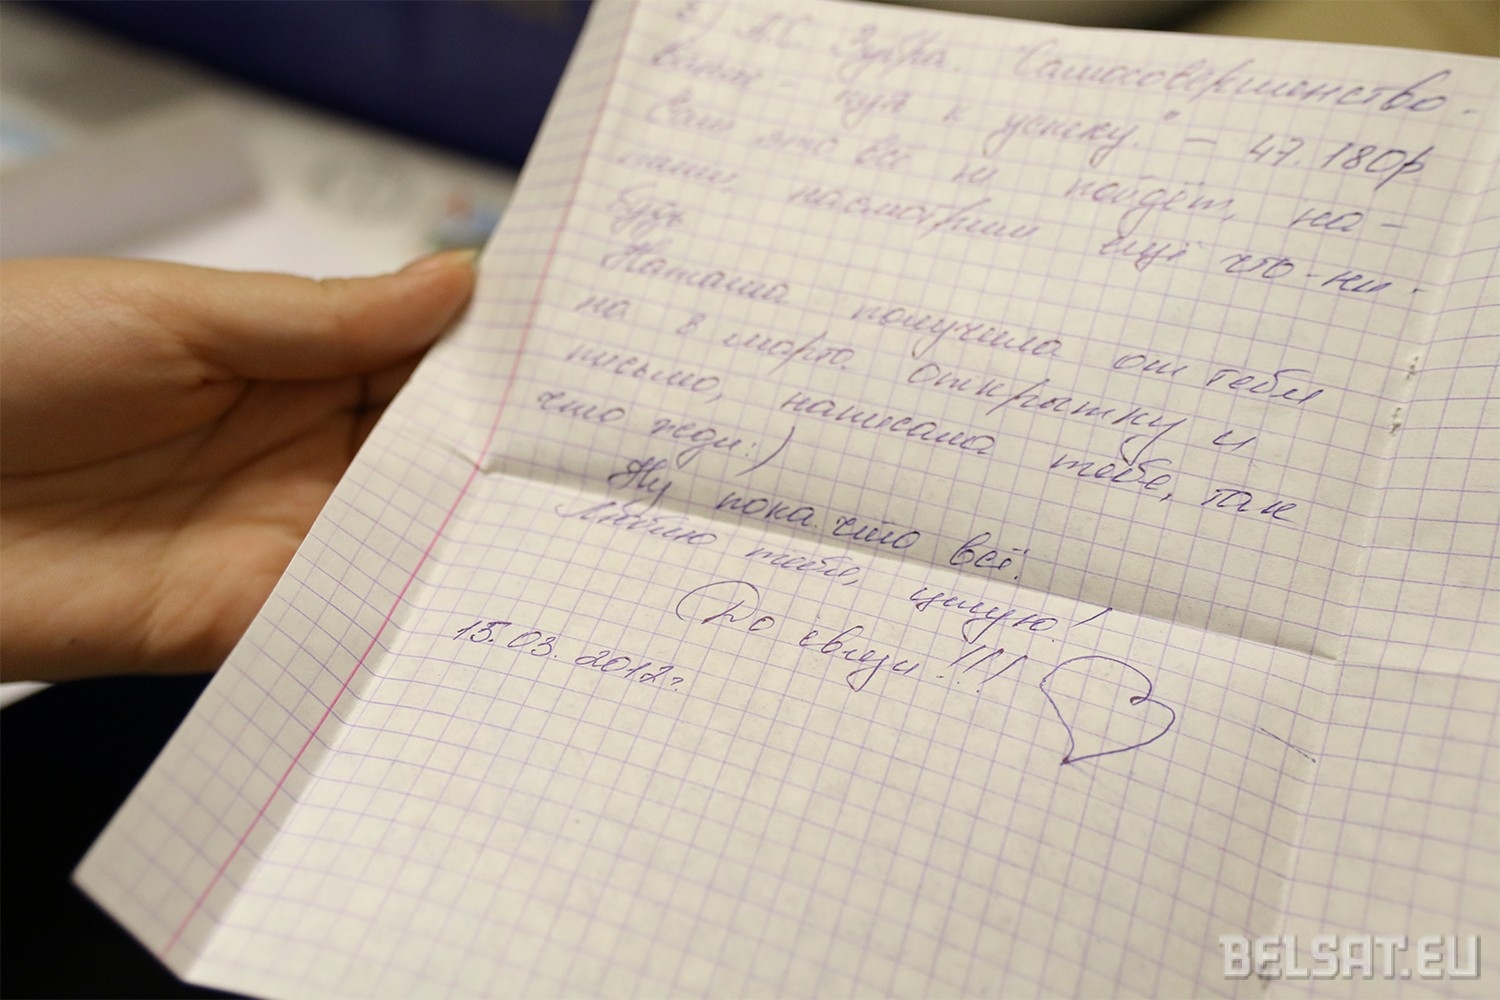 А.С. Зубра. "Самосовершенство-
вание - путь к успеху." – 47.180р
Если это всё не пойдёт, на-
пиши, насмотрим ещё что-ни-
будь
Наташа получила от тебя
на 8 марта открытку и
письмо, написала тебе, так
что жди:)
Ну пока что всё.
Люблю тебя, целую!
До связи!!!
15.03.2012г.
BELSAT.EU